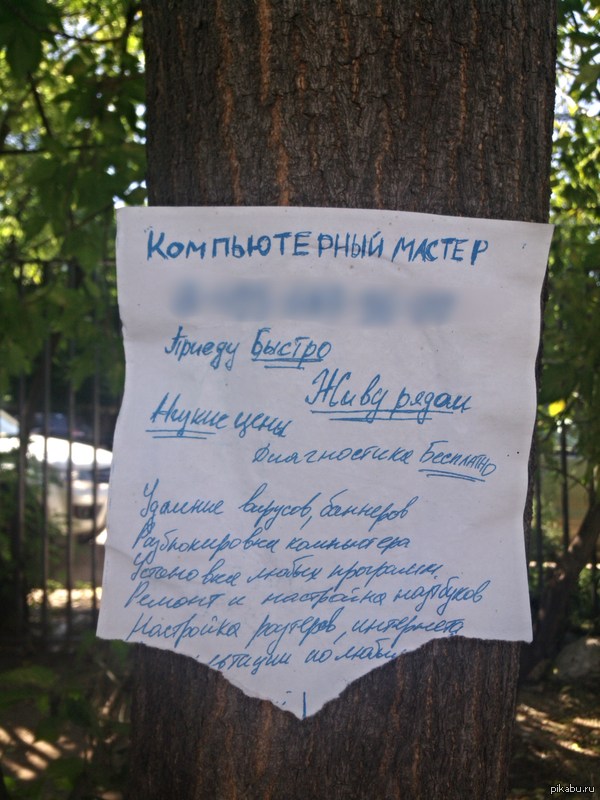 КОМПЬЮТЕРНЫЙ МАСТЕР
Приеду Быстро
Живу рядом
Низкие цены
Диагностика Бесплатно
Удаление вирусов, баннеров
Разблокировка компьютера
Установка любых программ
Ремонт и настройка ноутбуков
Настройка роутеров, интернета
льтации по любы
pikabu.ru